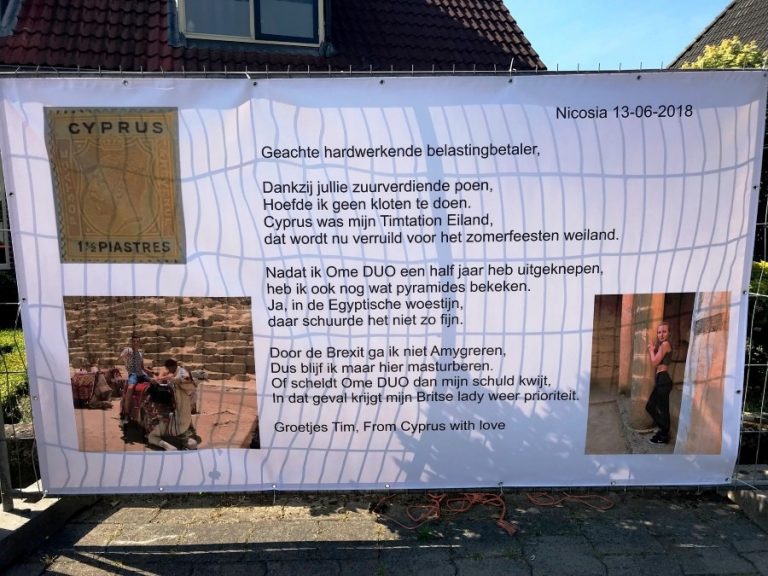 CYPRUS
1½ PIASTRES
Nicosia 13-06-2018
Geachte hardwerkende belastingbetaler,
Dankzij jullie zuurverdiende poen,
Hoefde ik geen kloten te doen.
Cyprus was mijn Timtation Eiland,
dat wordt nu verruild voor het zomerfeesten weiland.
Nadat ik Ome DUO een half jaar heb uitgeknepen,
heb ik ook nog wat pyramides bekeken.
Ja, in de Egyptische woestijn,
daar schuurde het niet zo fijn.
Door de Brexit ga ik niet Amygreren,
Dus blijf ik maar hier masturberen.
Of scheldt Ome DUO dan mijn schuld kwijt,
In dat geval krijgt mijn Britse lady weer prioriteit.
Groetjes Tim, From Cyprus with love